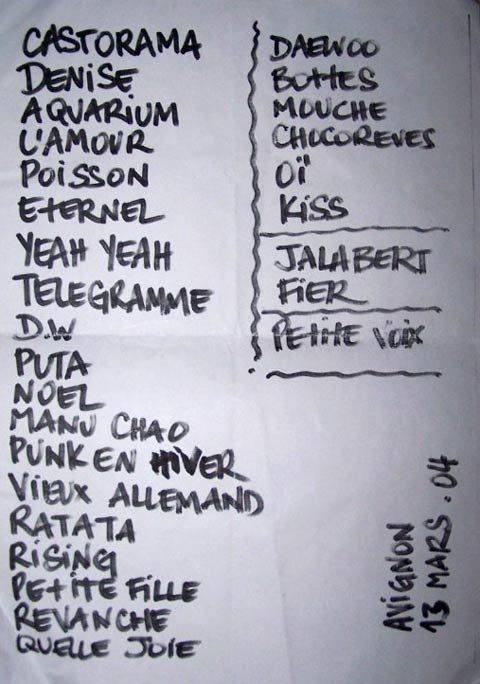 CASTORAMA
DENISE
AQUARIUM
L'AMOUR
POISSON
ETERNEL
YEAH YEAH
TELEGRAMME
D.W
PUTA
NOEL
MANU CHAO
PUNK EN HIVER
VIEUX ALLEMAND
RATATA
RISING
PETITE FILLE
REVANCHE
QUELLE JOIE
DAEWOO
BOTTES
MOUCHE
CHOCOREVES
OÏ
KISS
JALABERT
FIER
PETITE VOIX
AVIGNON
13 MARS. 04